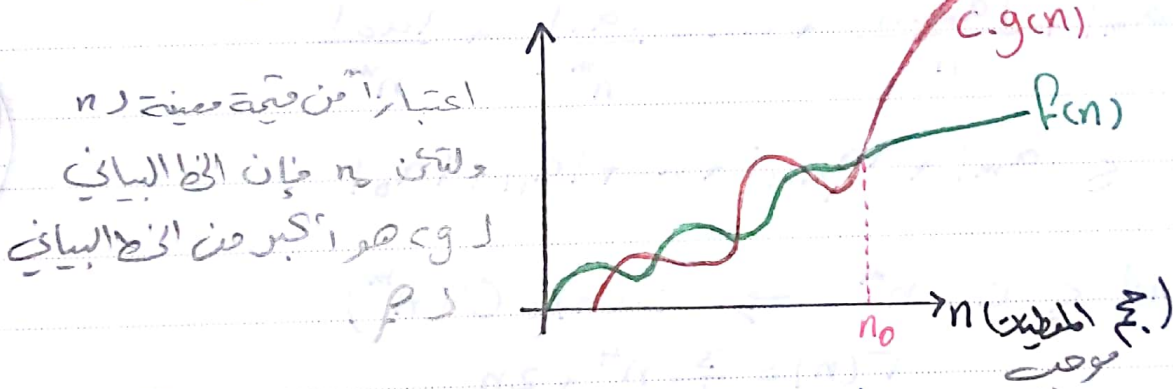 اعتباراً من قيمة معينة لـ n
ولتكن n₀ فإن الخط البياني
لـ cg هو أكبر من الخط البياني
لـ f.
c.g(n)
f(n)
n₀
n (المعطيات
موجب